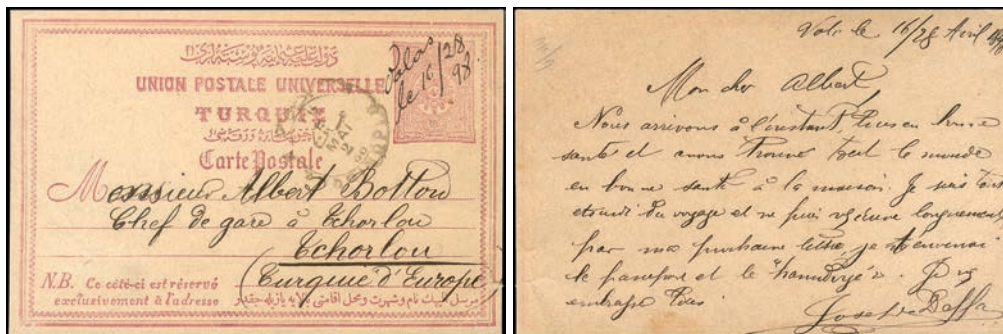 دول عليه عثمانيه پوسته لرى
UNION POSTALE UNIVERSELLE
TURQUIE
Carte Postale
le 16/28
98.
Monsieur Albert Bottou
Chef de gare à Tchorlou
Tchorlou
(Turquie d'Europe)
N.B. Ce côté-ci est réservé
exclusivement à l'adresse
MAI
2
Volo le 16/28 Avril
Mon cher Albert
Nous arrivons à l'instant, tous en bonne
santé et avons trouvé tout le monde
en bonne santé à la maison. Je suis tout
étourdi du voyage et ne puis longuement
par ma prochaine lettre, je
le passeport et le
embrasse tous.
Joseph